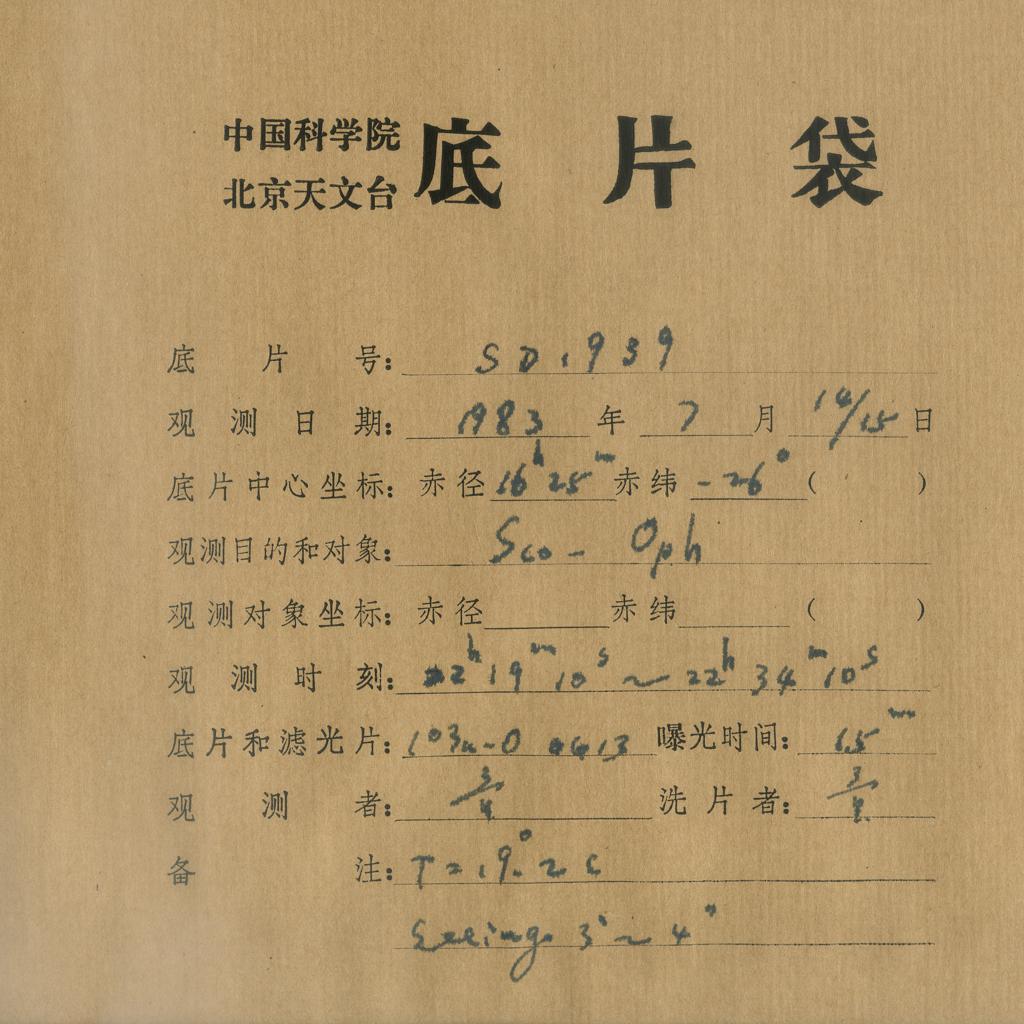 中国科学院
北京天文台 底片袋
底片号: SD1939
观测日期: 1983 年 7 月 14/15 日
底片中心坐标: 赤径 16h25m 赤纬 -26° ( )
观测目的和对象: Sco - Oph
观测对象坐标: 赤径 赤纬 ( )
观测时刻: 22h19m10s ~ 22h34m10s
底片和滤光片: 103a-O 曝光时间: 15m
观测者: 洗片者:
备注: T=19.°2 C
Seeing 3" ~ 4"